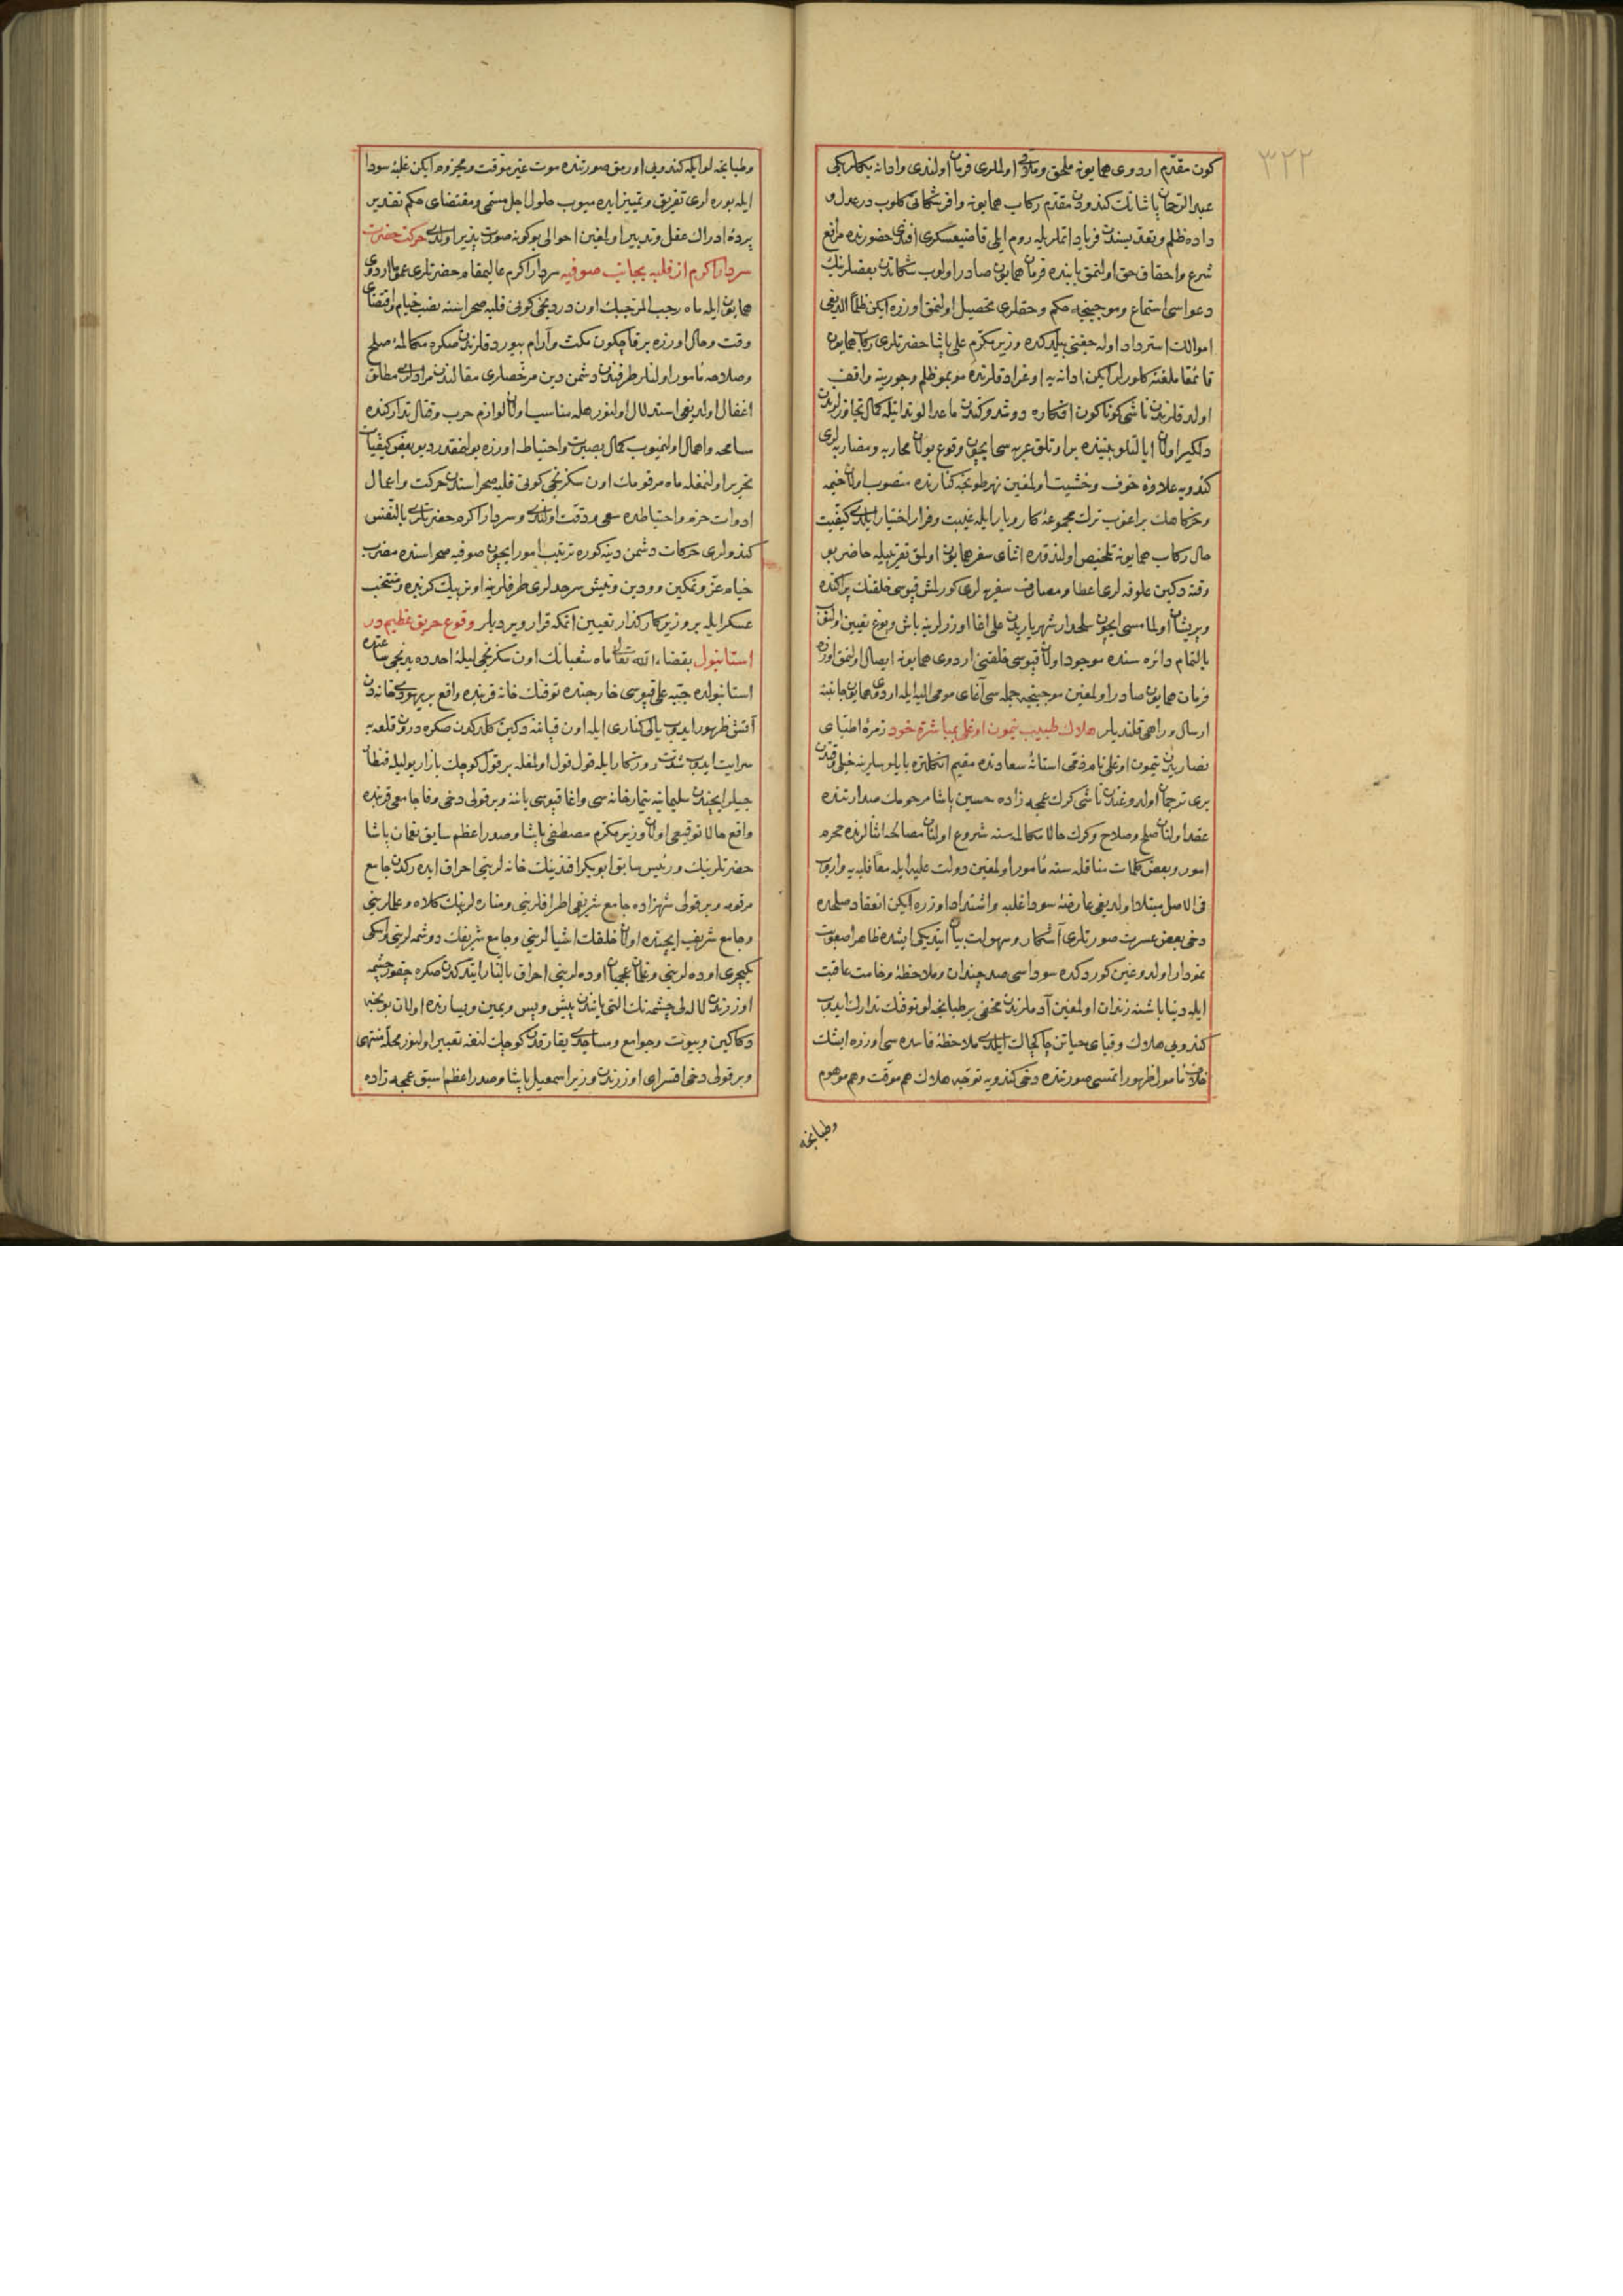 ٣٢٢
كون مقدم اردوی همایونه ملحق وملاقی اولملری فرمان اولندی وادانه بكلربكی
عبدالرحمن پاشانك كندودن مقدم ركاب همایونه وافر شكاتی كلوب در عدل و
داده ظلم وتعدیسندن فریاد اتملریله روم ایلی قاضیعسكری افندی حضورنده مرافع
شرع واحقاق حق اولنمق بابنده فرمان همایون صادر اولوب شكاتدن بعضلرینك
دعواسی استماع وموجبنجه حكم وحقلری تحصیل اولنمق اوزره ایكن ظلما الدیغی
اموالك استرداد اوله جغنی بیلدكده وزیر مكرم علی پاشا حضرتلری ركاب همایون
قائمقاملغنه كلورلر ایكن ادانه یه اوغرادقلرنده موبمو ظلم وجورینه واقف
اولدقلرندن ناشی كوناكون افكاره دوشدوكندن ماعدا لوندایله كمال تجاوزلرندن
دلكیر اولان ایالتلو بیننده براوتلق غربه سی ایچون وقوع بولان محاربه ومضاربه لری
كندویه علاوۀ خوف وخشیت اولمغین نهر طونجه كنارنده منصوب اولان خیمه
وخركاهك براغوب ترك مجموعۀ كاروبار ایله غیبت وفرار اختیار ایلدی كیفیت
حال ركاب همایونه تلخیص اولندقده اثنای سفر همایون اولمق تقریبیله حاضر بو
وقته دكین علوفه لری اعطا ومصارف سفریه لری كورلمش قپوسی خلقنك پراكنده
وپریشان اولمامسی ایچون سلحدار شهریاریدن علی اغا اوزرلرینه باش وبوغ تعیین اولنوب
بالتمام دائره سنده موجود اولان قپوسی خلقنی اردوی همایونه ایصال اولنمق اوزره
فرمان همایون صادر اولمغین موجبنجه جمله سی آغای مومی الیه ایله اردوی همایون جانبنه
ارسال وراهی قلندیلر هلاك طبیب تیمون اوغلی بمباشرۀ خود زمرۀ اطبای
نصاریدن تیمون اوغلی نام ذمی استانۀ سعادتده مقیم انكلتره بایلوسلرینه خیلی وقتدن
بری ترجمان اولدوغندن ناشی كرك عمجه زاده حسین پاشا مرحومك صدارتنده
عقد اولنان صلح وصلاح وكرك حالا مكالمه سنه شروع اولنان مصالحه اثنالرنده محرم
امور وبعض كلمات مناقله سنه مامور اولمغین دولت علیه ایله معا فلبه یه واروب
فی الاصل مبتلا اولدیغی عارضۀ سودا غلبه واشتداد اوزره ایكن انعقاد صلحده
دخی بعض عسرت صورتلری آشكار وسهولت بیان ایتدیكی ایشده ظاهرا صعوبت
نمودار اولدوغین كوردكده سوداسی صد چندان وملاحظۀ وخامت عاقبت
ایله دنیا باشنه زندان اولمغین آدملرندن مخفی بر طبانجه لو توفنك تدارك ایدوب
كندویی هلاك وقبای حیاتن چاك چاك ایلدی ملاحظۀ فاسده سی اوزره ایشك
خلاف مامول ظهور اتمسی صورتنده دخی كندویه توجه هلاك هم موقت وهم موهوم
وطبانجه
وطبانجه لو ایله كندویی اورمق صورتنده موت غیر موقت ومجزوم ایكن غلبۀ سودا
ایله بوره لری تفریق وتمییز ایده میوب حلول اجل مسمی ومقتضای حكم تقدیر
پردۀ ادراك عقل وتدبیر اولمغین احوالی بوكونه صورت پذیر اولدی حركت حضرت
سردار اكرم از فلبه بجانب صوفیه سردار اكرم عالیمقام حضرتلری عموما اردوی
همایون ایله ماه رجب المرجبك اون دردنجی كونی فلبه صحراسنه نصب خیام واقتضای
وقت وحال اوزره بر قاچ كون مكث وآرام بیوردقلرندن صكره مكالمۀ صلح
وصلاحه مامور اولنلر طرفندن دشمن دین مرخصلری مقالندن مرادلری مطلق
اغفال اولدیغی استدلال اولنور حله مناسب اولان لوازم حرب وقتال تداركنده
سامحه واهمال اولنمیوب كمال بصیرت واحتیاط اوزره بولنمقدر دیو بعض كیفیات
تحریر اولنمغله ماه مرقومك اون سكزنجی كونی فلبه صحراسندن حركت واعمال
ادوات حزم واحتیاطده سعی ودقت اولندی وسردار اكرم حضرتلری بالنفس
كندولری حركات دشمن دینه كوره ترتیب امور ایچون صوفیه صحراسنده مضرب
خیام عز وتمكین وودین ونیش سرحدلری طرفلرینه اون بیك كزیده ومنتخب
عسكر ایله بر وزیر كاركذار تعیین اتمكه قرار ویردیلر وقوع حریق عظیم در
استانبول بقضاء الله تعالی ماه شعبانك اون سكزنجی لیلۀ احدده یدنجی ساعتده
استانبولده جبه علی قپوسی خارجنده توفنك خانه قربنده واقع بر یهودی خانه دن
آتش ظهور ایدوب یالی كناری ایله اون قپاننه دكین كلدكدن صكره درون قلعه یه
سرایت ایدوب شدت روزكار ایله قول قول اولمغله بر قول كوچك بازار یولیله قنطار
جیلر ایچندن سلیمانیه تیمارخانه سی واغا قپوسی یاننه وبر قولی دخی وفا جامعی قربنده
واقع حالا توقیعی اولان وزیر مكرم مصطفی پاشا وصدر اعظم سابق نعمان پاشا
حضرتلرینك ورئیس سابق ابوبكر افندینك خانه لرینی احراق ایده رك جامع
مرقوم وبر قولی شهزاده جامع شریفی اطرافلرینی ومناره لرینك كلاه وعلملرینی
وجامع شریف ایچنده اولان خلقك اشیالرینی وجامع شریفك دوشمه لرینی واسكی
یكیچری اوده لرینی وغلمان عجمیان اوده لرینی احراق بالنار ایتدكدن صكره چقور چشمه
اوزرندن لاله لی چشمه نك التی یانندن پیش وپس ویمین ویسارنده اولان بونجه
دكاكین وبیوت وجوامع ومساجدی یقارق كوچك لنغه تعبیر اولنور محله منتهی
وبر قولی دخی اقسرای اوزرندن وزیر اسمعیل پاشا وصدر اعظم اسبق عمجه زاده